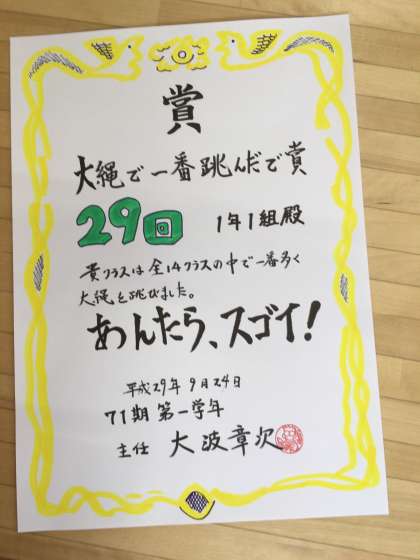 賞
大縄で一番跳んだで賞
29回 1年1組殿
貴クラスは全14クラスの中で一番多く
大縄を跳びました。
あんたら、スゴイ!
平成29年9月24日
71期第一学年
主任 大波章次